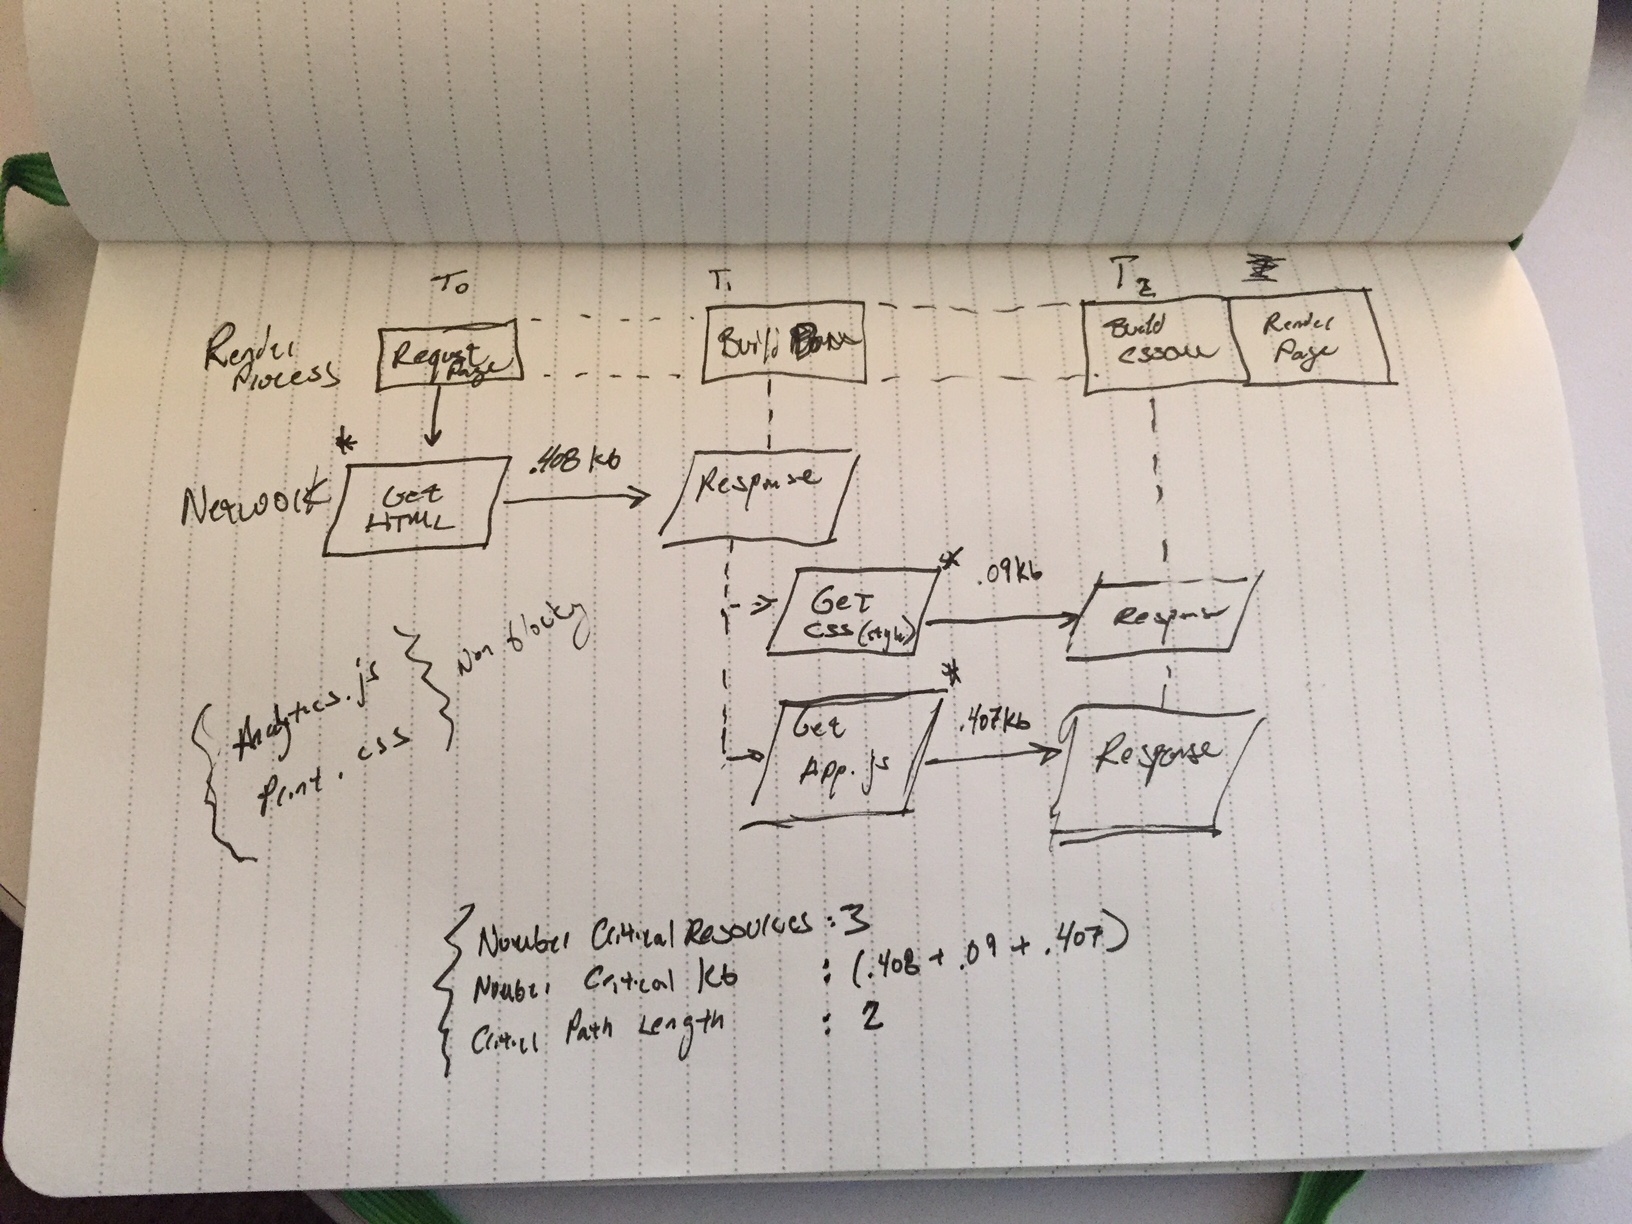 T0
T1
T2
Render
Process
Request
Page
Build Dom
Build
CSSOM
Render
Page
*
.408 kb
Network
Get
HTML
Response
*
.09kb
Get
CSS (style)
Response
*
.407kb
Get
App.js
Response
Analytics.js
Print.css
Non blocking
Number Critical Resources : 3
Number Critical Kb : (.408 + .09 + .407)
Critical Path Length : 2